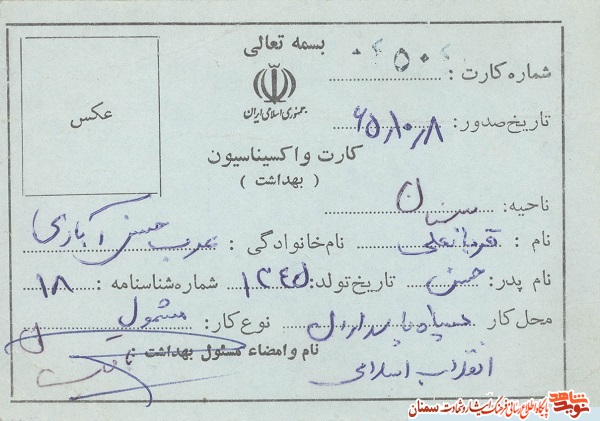 بسمه تعالی
جمهوری اسلامی ایران
عکس
شماره کارت : ۵۰
تاریخ صدور: ۶۵/۱۰/۸
کارت واکسیناسیون
( بهداشت )
ناحیه: سمنان
نام : قربانعلی نام خانوادگی : عرب حسن آبادی
نام پدر: حسن تاریخ تولد: ۱۳۴۵ شماره شناسنامه : ۱۸
محل کار سپاه پاسداران نوع کار: مشمول
انقلاب اسلامی
نام و امضاء مسئول بهداشت :
نوید شاهد پایگاه اطلاع رسانی فرهنگ ایثار و شهادت سمنان